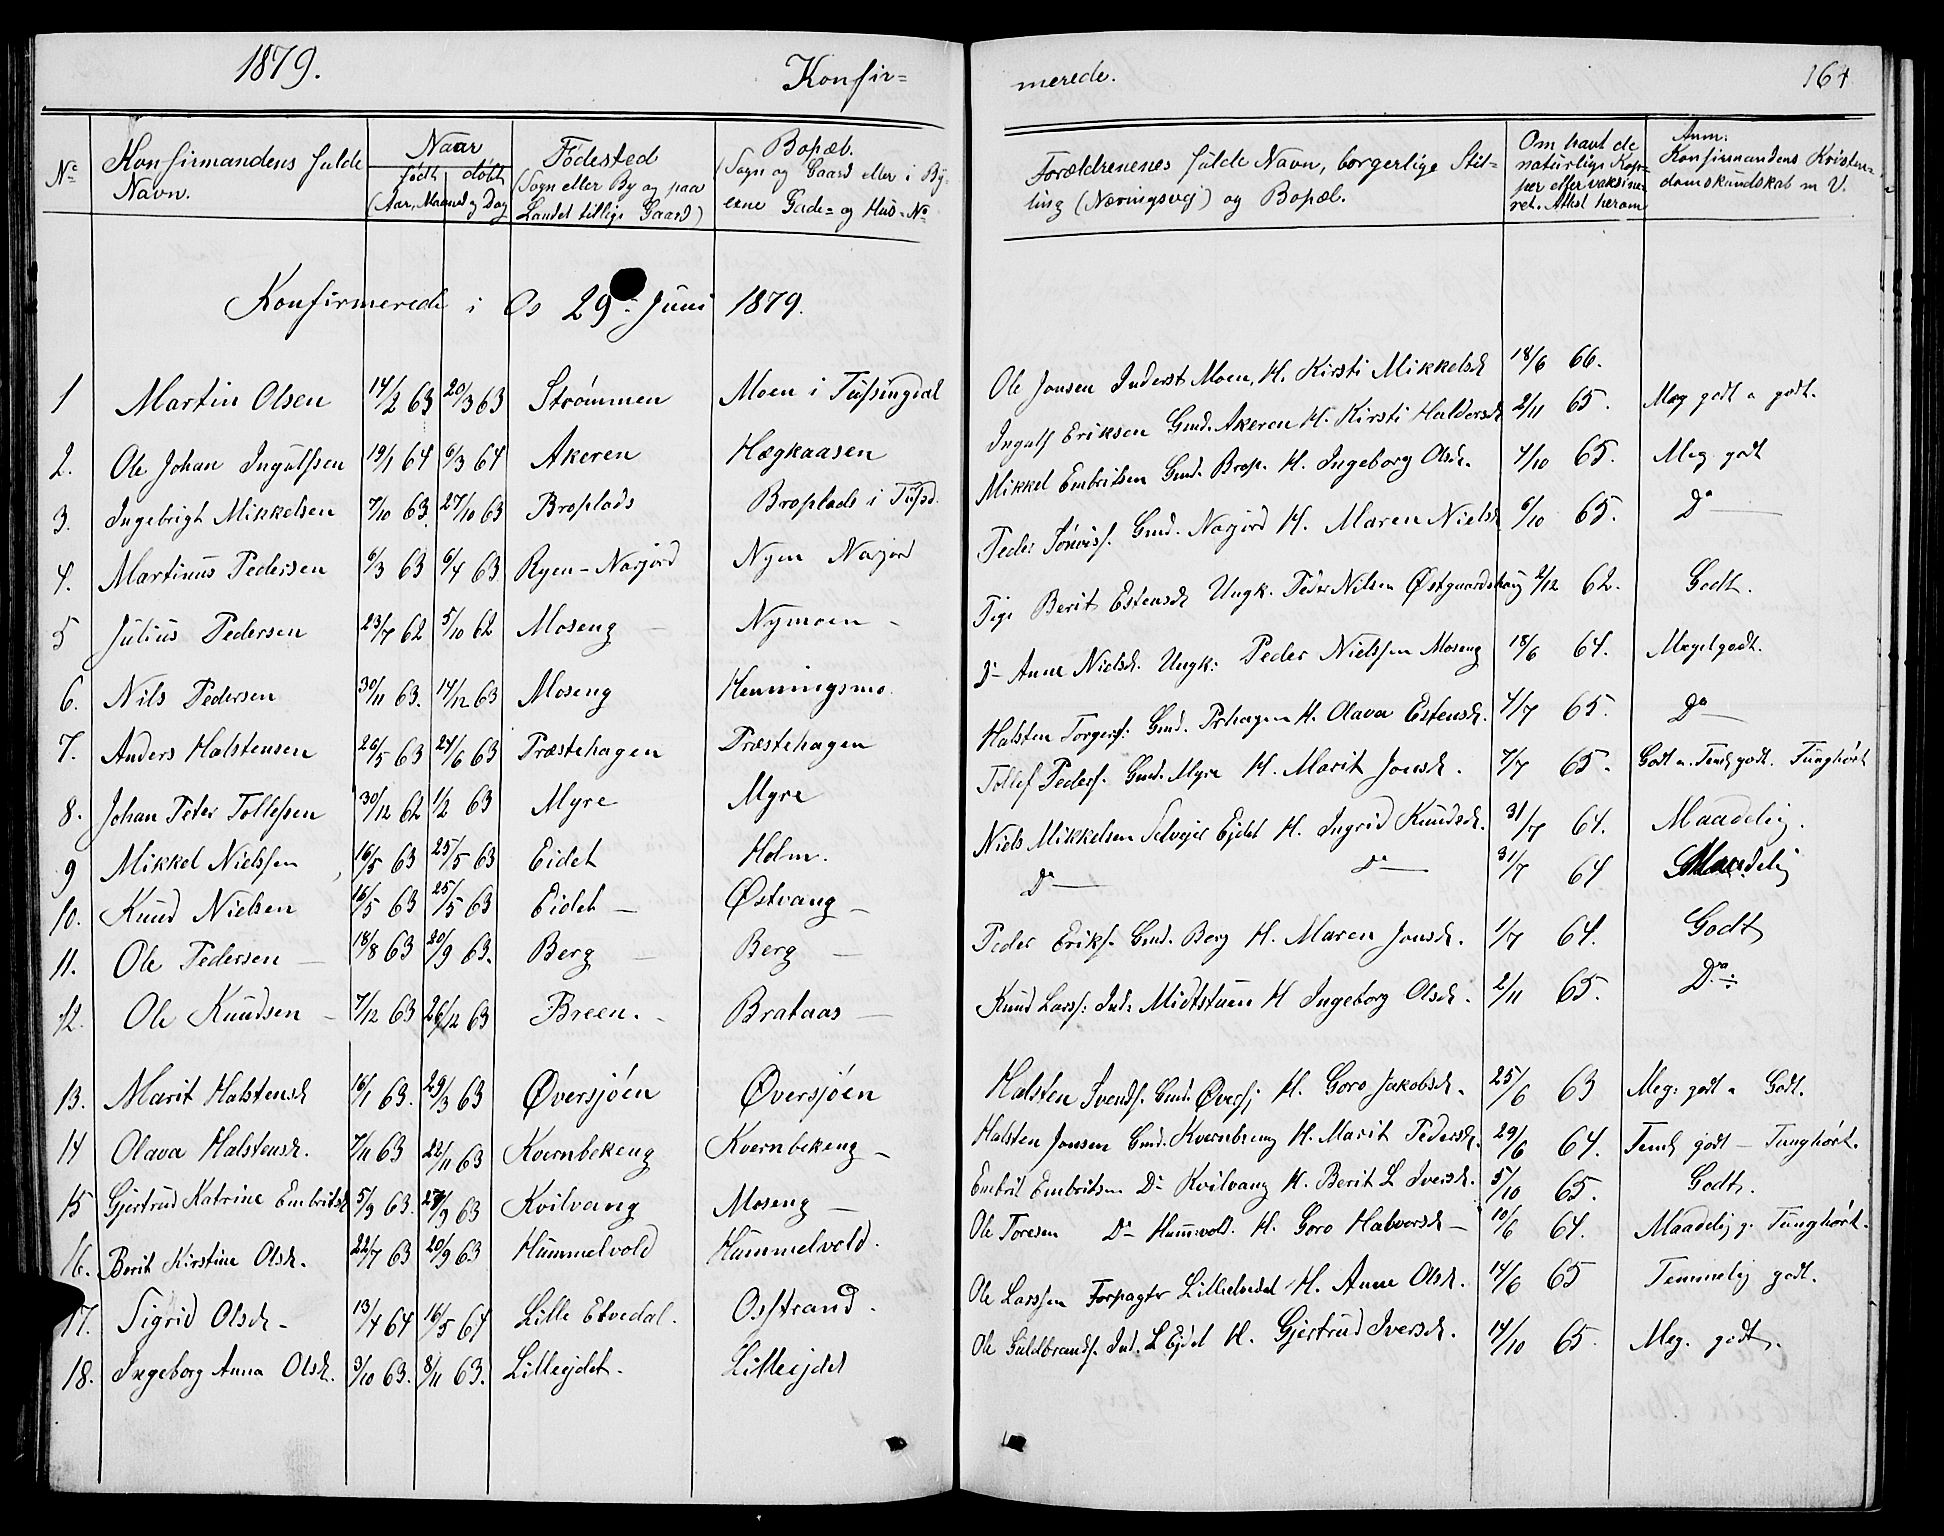 1879. Konfir= merede. 164
No Konfirmandens fulde Navn. Naar født døbt (Aar, Maaned og Dag) Fødested (Sogn eller By og paa Landet tillige Gaard) Bopæl. (Sogn og Gaard eller i Byerne Gade= og Hus=No Forældrenenes fulde Navn, borgerlige Stilling (Næringsvej) og Bopæl. Om havt de naturlige Kopper eller vaksineret. Attest herom Anm: Konfirmandens Kristendomskundskab m V.
Konfirmerede i Os 29. Juni 1879.
1 Martin Olsen 14/2 63 20/3 63 Strømmen Moen i Tufsingdal Ole Jonsen Inderst Moen, H. Kirsti Mikkelsd 18/6 66.
2. Ole Johan Ingulfsen 19/1 64 6/3 64 Akeren Hægkaasen Ingulf Eriksen Gmd. Akeren H. Kirsti Haldorsd 2/11 65. Meg godt a godt.
3. Ingebrigt Mikkelsen 7/10 63. 27/10 63 Broplads Broplads i Tufsd. Mikkel Embritsen Gmd. Brop. H. Ingeborg Olsd. 4/10 65. Meg. godt
4. Martinus Pedersen 6/3 63 6/4 63 Ryen - Narjord Nyen Narjord Peder Gmd. Narjord H. Maren Nielsd 6/10 65. Do
5 Julius Pedersen 23/7 62 5/10 62 Moseng Nymoen - Pige Berit Estensd Ungk. Peder Nilsen Østgaardshaug 2/12 62. Godt.
6. Nils Pedersen 30/11 63. 14/12 63 Moseng Henningsmo. Do Anne Nielsd. Ungk: Peder Nielssen Moseng 18/6 64. Meget godt.
7. Anders Halstensen 26/5 63 24/6 63 Præstehagen Præstehagen Halsten Torgers: Gmd. Prhagen H. Olava Estensd. 4/7 65. Do
8. Johan Peter Tollefsen 30/12 62 1/2 63 Myre Myre Tollef Peders. Gmd. Myre H. Marit Jonsd. 7/7 65. Godt a. Teml godt. Tunghørt
9 Mikkel Nielssen 16/5 63 25/5 63 Eidet Holm. Niels Mikkelsen Selvejer Ejdet H. Ingrid Knudsd. 31/7 64. Maadelig.
10. Knud Nielsen 16/5 63 25/5 63 Eidet - Østvang - Do Do 31/7 64 Maadelig
11. Ole Pedersen - 18/8 63 20/9 63. Berg - Berg - Peder Eriks. Gmd. Berg H. Maren Jonsd. 1/7 64. Godt
12. Ole Knudsen - 7/12 63 26/12 63 Breen. - Brataas - Knud Larss: Ind. Midtstuen H Ingeborg Olsd. 2/11 65. Do:
13. Marit Halstensd 16/1 63. 29/3 63 Øversjøen Øversjøen Halsten Svends. Gmd. Øversj H. Goro Jakobsd. 25/6 63 Meg: godt a Godt.
14 Olava Halstensd. 7/11 63 22/11 63 Kvernbekeng Kvernbekeng - Halsten Jonsen Gmd. Kvernbreng H. Marit Pedersd. 29/6 64. Teml godt - Tunghørt.
15 Gjertrud Katrine Embritsd 5/9 63. 27/9 63 Kvilvang Moseng - Embrit Embritsen Do Kvilvang H. Berit L Iversd. 5/10 65. Godt.
16. Berit Kirstine Olsd. 22/7 63 20/9 63 Hummelvold Hummelvold. Ole Toresen Do Humvold. H. Goro Halvorsd - 10/6 64. Maadelig. Tunghørt.
17. Sigrid Olsd - 13/4 64 16/5 64 Lille Elvedal. Osstrand. Ole Larssen Forpagter Lilleelvedal H. Anne Olsd. 14/6 65 Temmelig godt.
18. Ingeborg Anna Olsd. 3/10 63. 8/11 63. Lilleejdet. Lilleejdet Ole Guldbrands. Ind. L Ejdet H. Gjertrud Iversd. 14/10 65. Meg. godt.